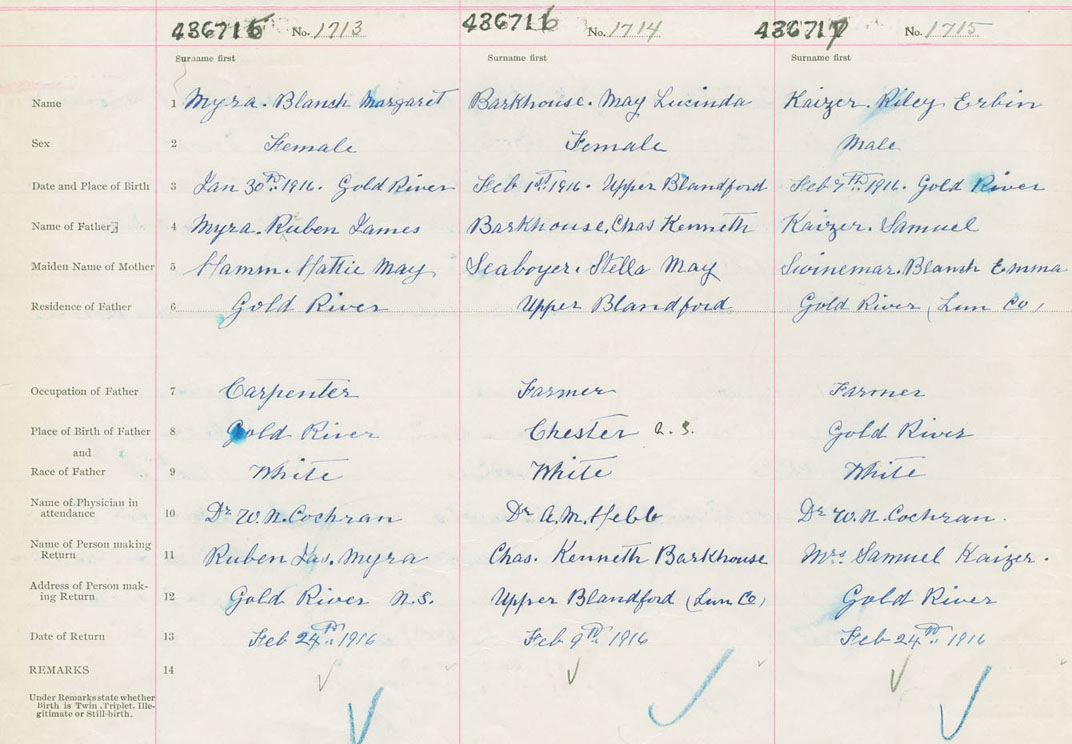 436715 No. 1713 436716 No. 1714 436717 No. 1715
Surname first Surname first Surname first
Name 1 Myra. Blanch Margaret Barkhouse. May Lucinda Kaizer. Riley Erbin
Sex 2 Female Female Male
Date and Place of Birth 3 Jan 30th 1916. Gold River Feb 1st 1916. Upper Blandford Feb 7th 1916. Gold River
Name of Father 4 Myra. Ruben James Barkhouse, Chas Kenneth Kaizer. Samuel
Maiden Name of Mother 5 Hamm. Hattie May Seaboyer. Stella May Swinemar. Blanch Emma
Residence of Father 6 Gold River Upper Blandford Gold River (Lun Co)
Occupation of Father 7 Carpenter Farmer Farmer
Place of Birth of Father 8 Gold River Chester Gold River
and
Race of Father 9 White White White
Name of Physician in
attendance 10 Dr W.N. Cochran Dr A.M. Hebb Dr W.N. Cochran.
Name of Person making
Return 11 Ruben Jas. Myra Chas. Kenneth Barkhouse Mrs Samuel Kaizer.
Address of Person mak-
ing Return 12 Gold River N.S. Upper Blandford (Lun Co) Gold River
Date of Return 13 Feb 24th 1916 Feb 9th 1916 Feb 24th 1916
REMARKS 14
Under Remarks state whether
Birth is Twin, Triplet, Ille-
gitimate or Still-birth.